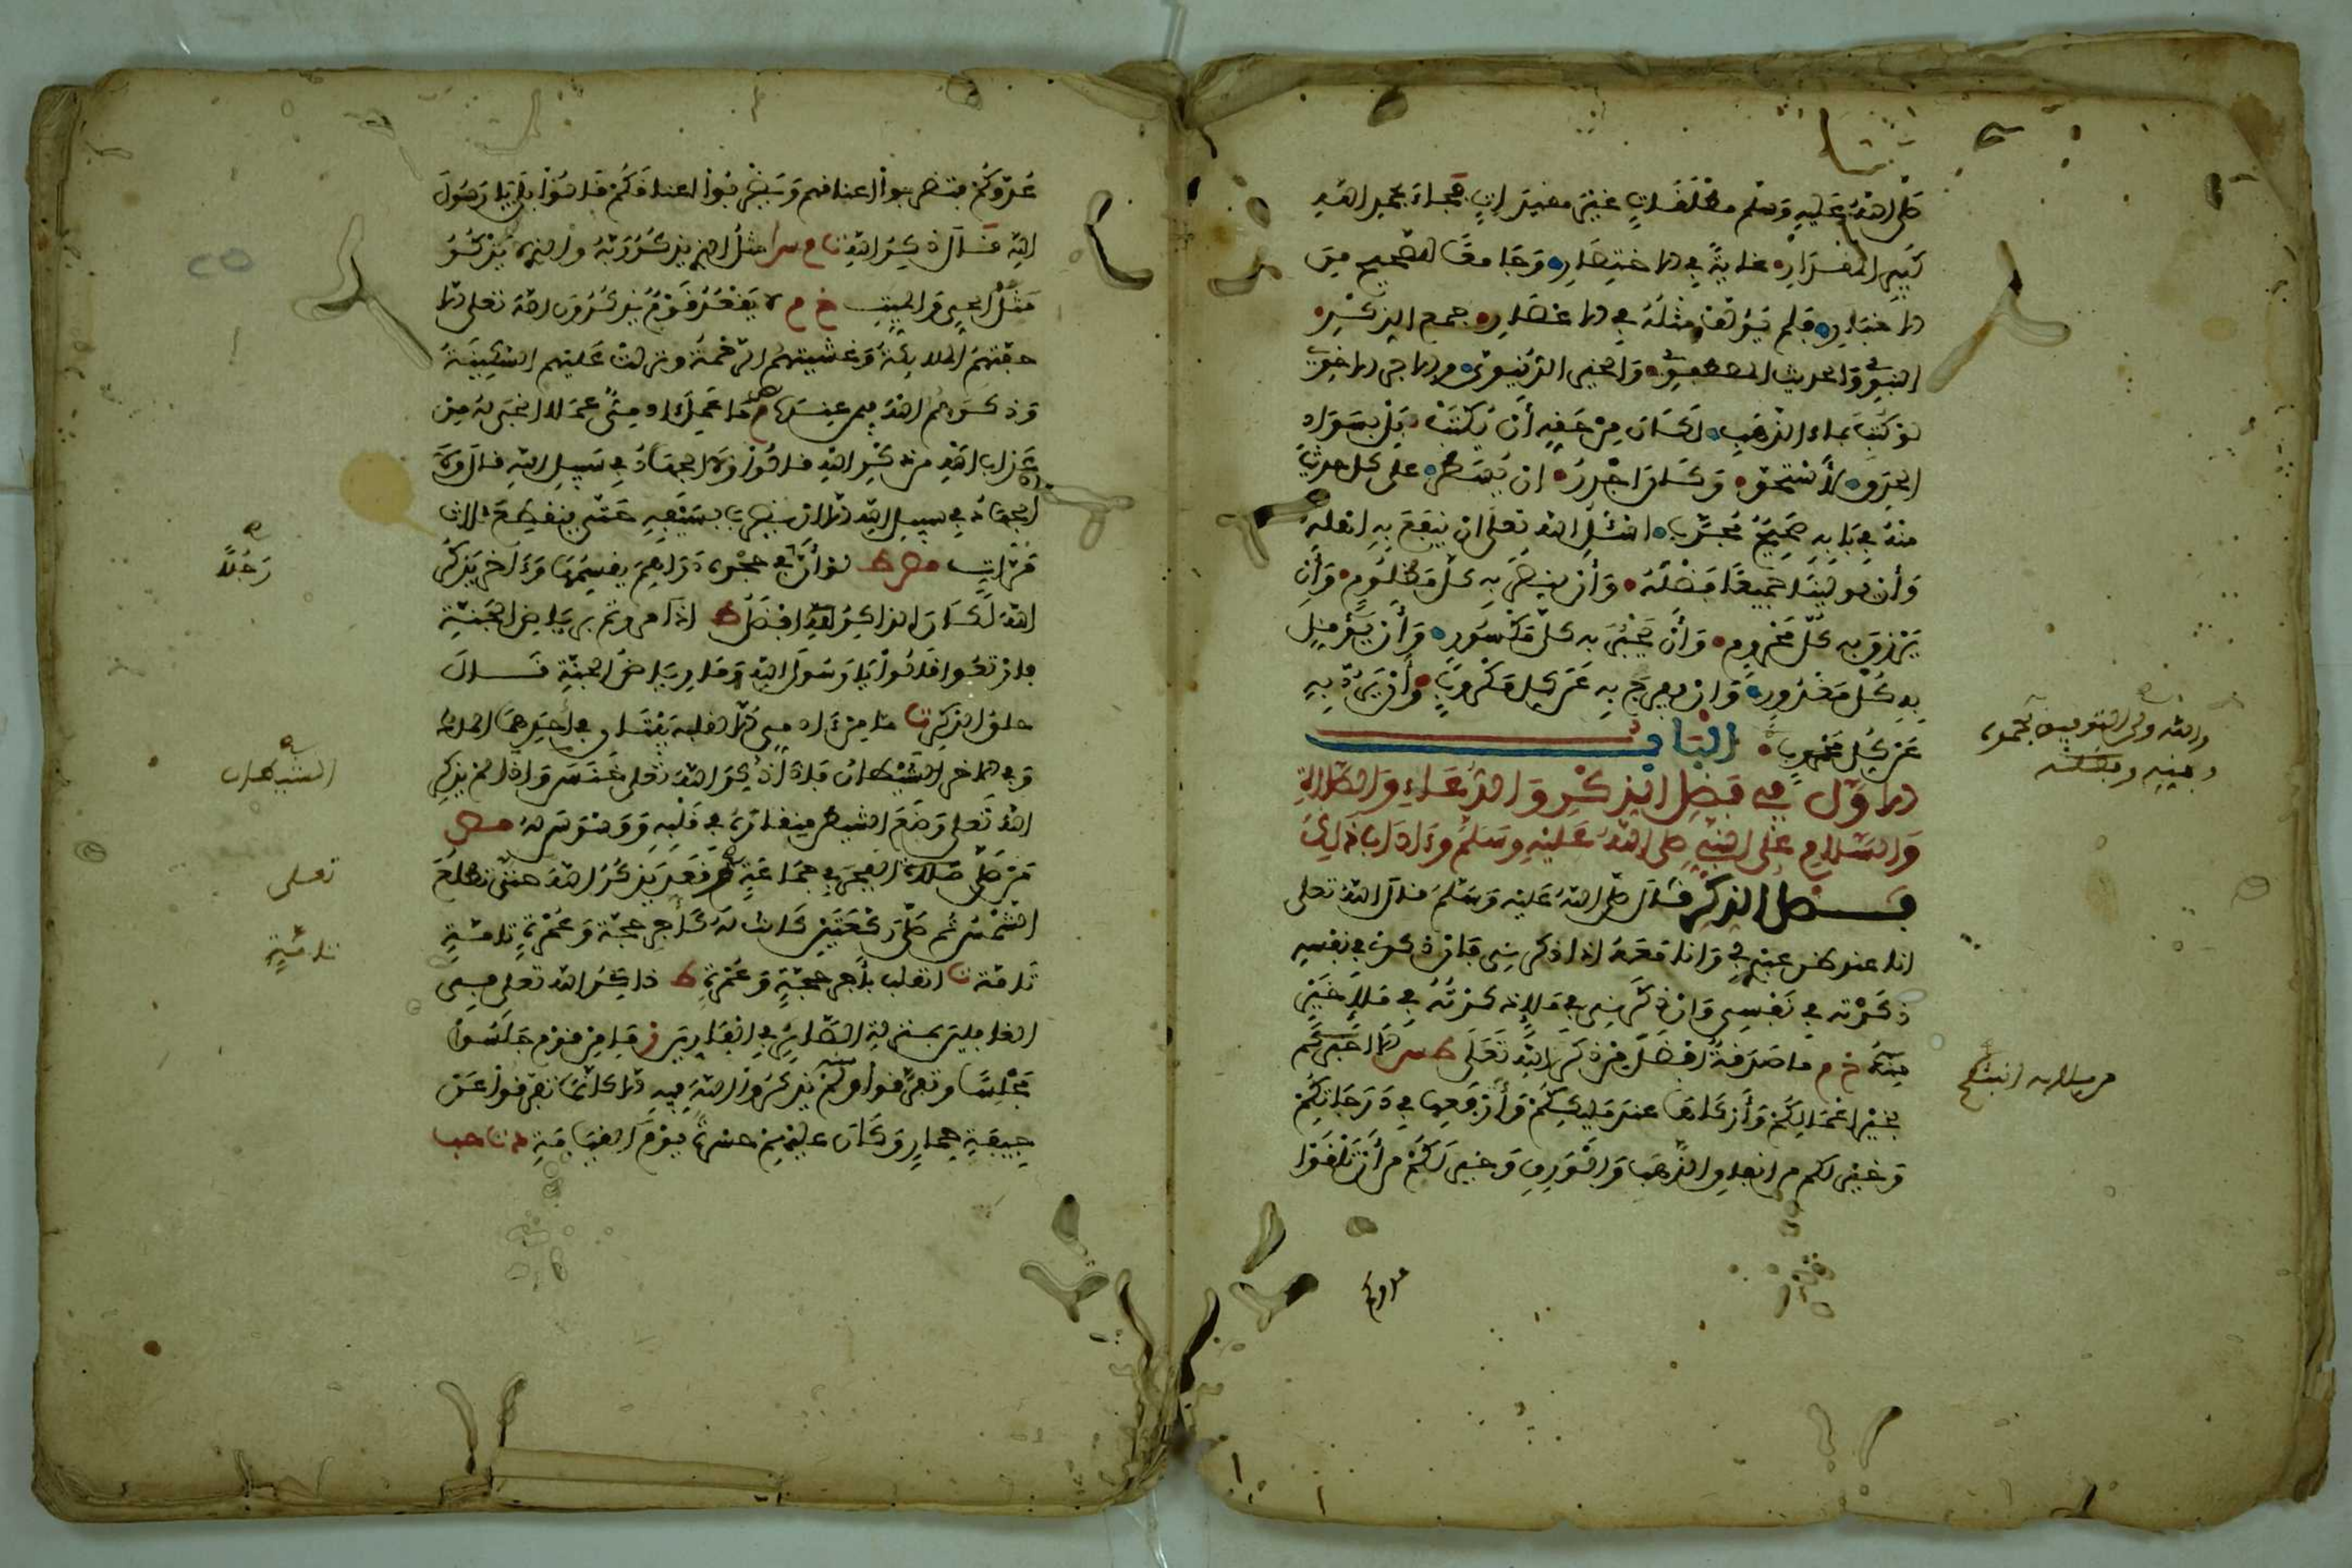 صلى الله عليه وسلم مختلفات غير مفيدات فجاء بحمد الله
كبير المقدار غاية في الاختصار وجامعا للصحيح من
الاخبار فلم يؤلف مثله في الاعصار جمع الذكر
النبوي والحديث المصطفوي والخير الدنيوي والاخروي
لو كتب بماء الذهب لكان من حقه أن يكتب بل بسواد
الحدق لاستحق وكان اجدر ان يسطر على كل حديث
منه في بابه صحيح مجرب اسئل الله تعلى ان ينفع به اهله
وأن يولينا جميعا فضله وأن ينصر به كل مظلوم وأن
يرزق به كل محروم وأن يجبر به كل مكسور وأن يؤمن
به كل مغرور وان يفرج به عن كل مكروب وأن يرد به
عن كل محروب الباب
الاول في فضل الذكر والدعاء والصلاة
والسلام على النبي صلى الله عليه وسلم وءاداب ذلك
فضل الذكر قال صلى الله عليه وسلم قال الله تعلى
انا عند ظن عبدي بي وانا معه اذا ذكرني فان ذكرني في نفسه
ذكرته في نفسي وان ذكرني في ملإ ذكرته في ملإ خير
منه خ م ما صدقة أفضل من ذكر الله تعلى طس الا اخبركم
بخير اعمالكم وأزكاها عند مليككم وأرفعها في درجاتكم
وخير لكم من انفاق الذهب والورق وخير لكم من أن تلقوا
عدوكم
والله ولي التوفيق بحمده
ويمنه وفضله
عدوكم فتضربوا اعناقهم ويضربوا اعناقكم قالوا بلى يا رسول
الله قال ذكر الله مثل الذي يذكر ربه والذي لا يذكر
مثل الحي والميت خ م لا يقعد قوم يذكرون الله تعلى الا
حفتهم الملائكة وغشيتهم الرحمة ونزلت عليهم السكينة
وذكرهم الله فيمن عنده م ما عمل ءادمي عملا انجى له من
عذاب الله من ذكر الله قالوا ولا الجهاد في سبيل الله قال ولا
الجهاد في سبيل الله الا ان يضرب بسيفه حتى ينقطع ثلاث
مرات مص ط لو أن في حجره دراهم يقسمها وءاخر يذكر
الله لكان الذاكر لله افضل ط اذا مررتم برياض الجنة
فارتعوا قالوا يا رسول الله وما رياض الجنة قال
حلق الذكر ت ما من ءادمي الا لقلبه بيتان في احدهما الملك
وفي الاخر الشيطان فاذا ذكر الله تعلى خنس واذا لم يذكر
الله تعلى وضع الشيطن منقاره في قلبه ووسوس له مص
من صلى صلاة الفجر في جماعة ثم قعد يذكر الله حتى تطلع
الشمس ثم صلى ركعتين كانت له كأجر حجة وعمرة تامة
تامة ت انقلب بأجر حجة وعمرة ط ذاكر الله تعلى في
الغافلين بمنزلة الصابر في الفارين ز ما من قوم جلسوا
مجلسا وتفرقوا ولم يذكروا الله فيه الا كأنما تفرقوا عن
جيفة حمار وكان عليهم حسرة يوم القيامة
رجلا
الشيطان
تعلى
تامة